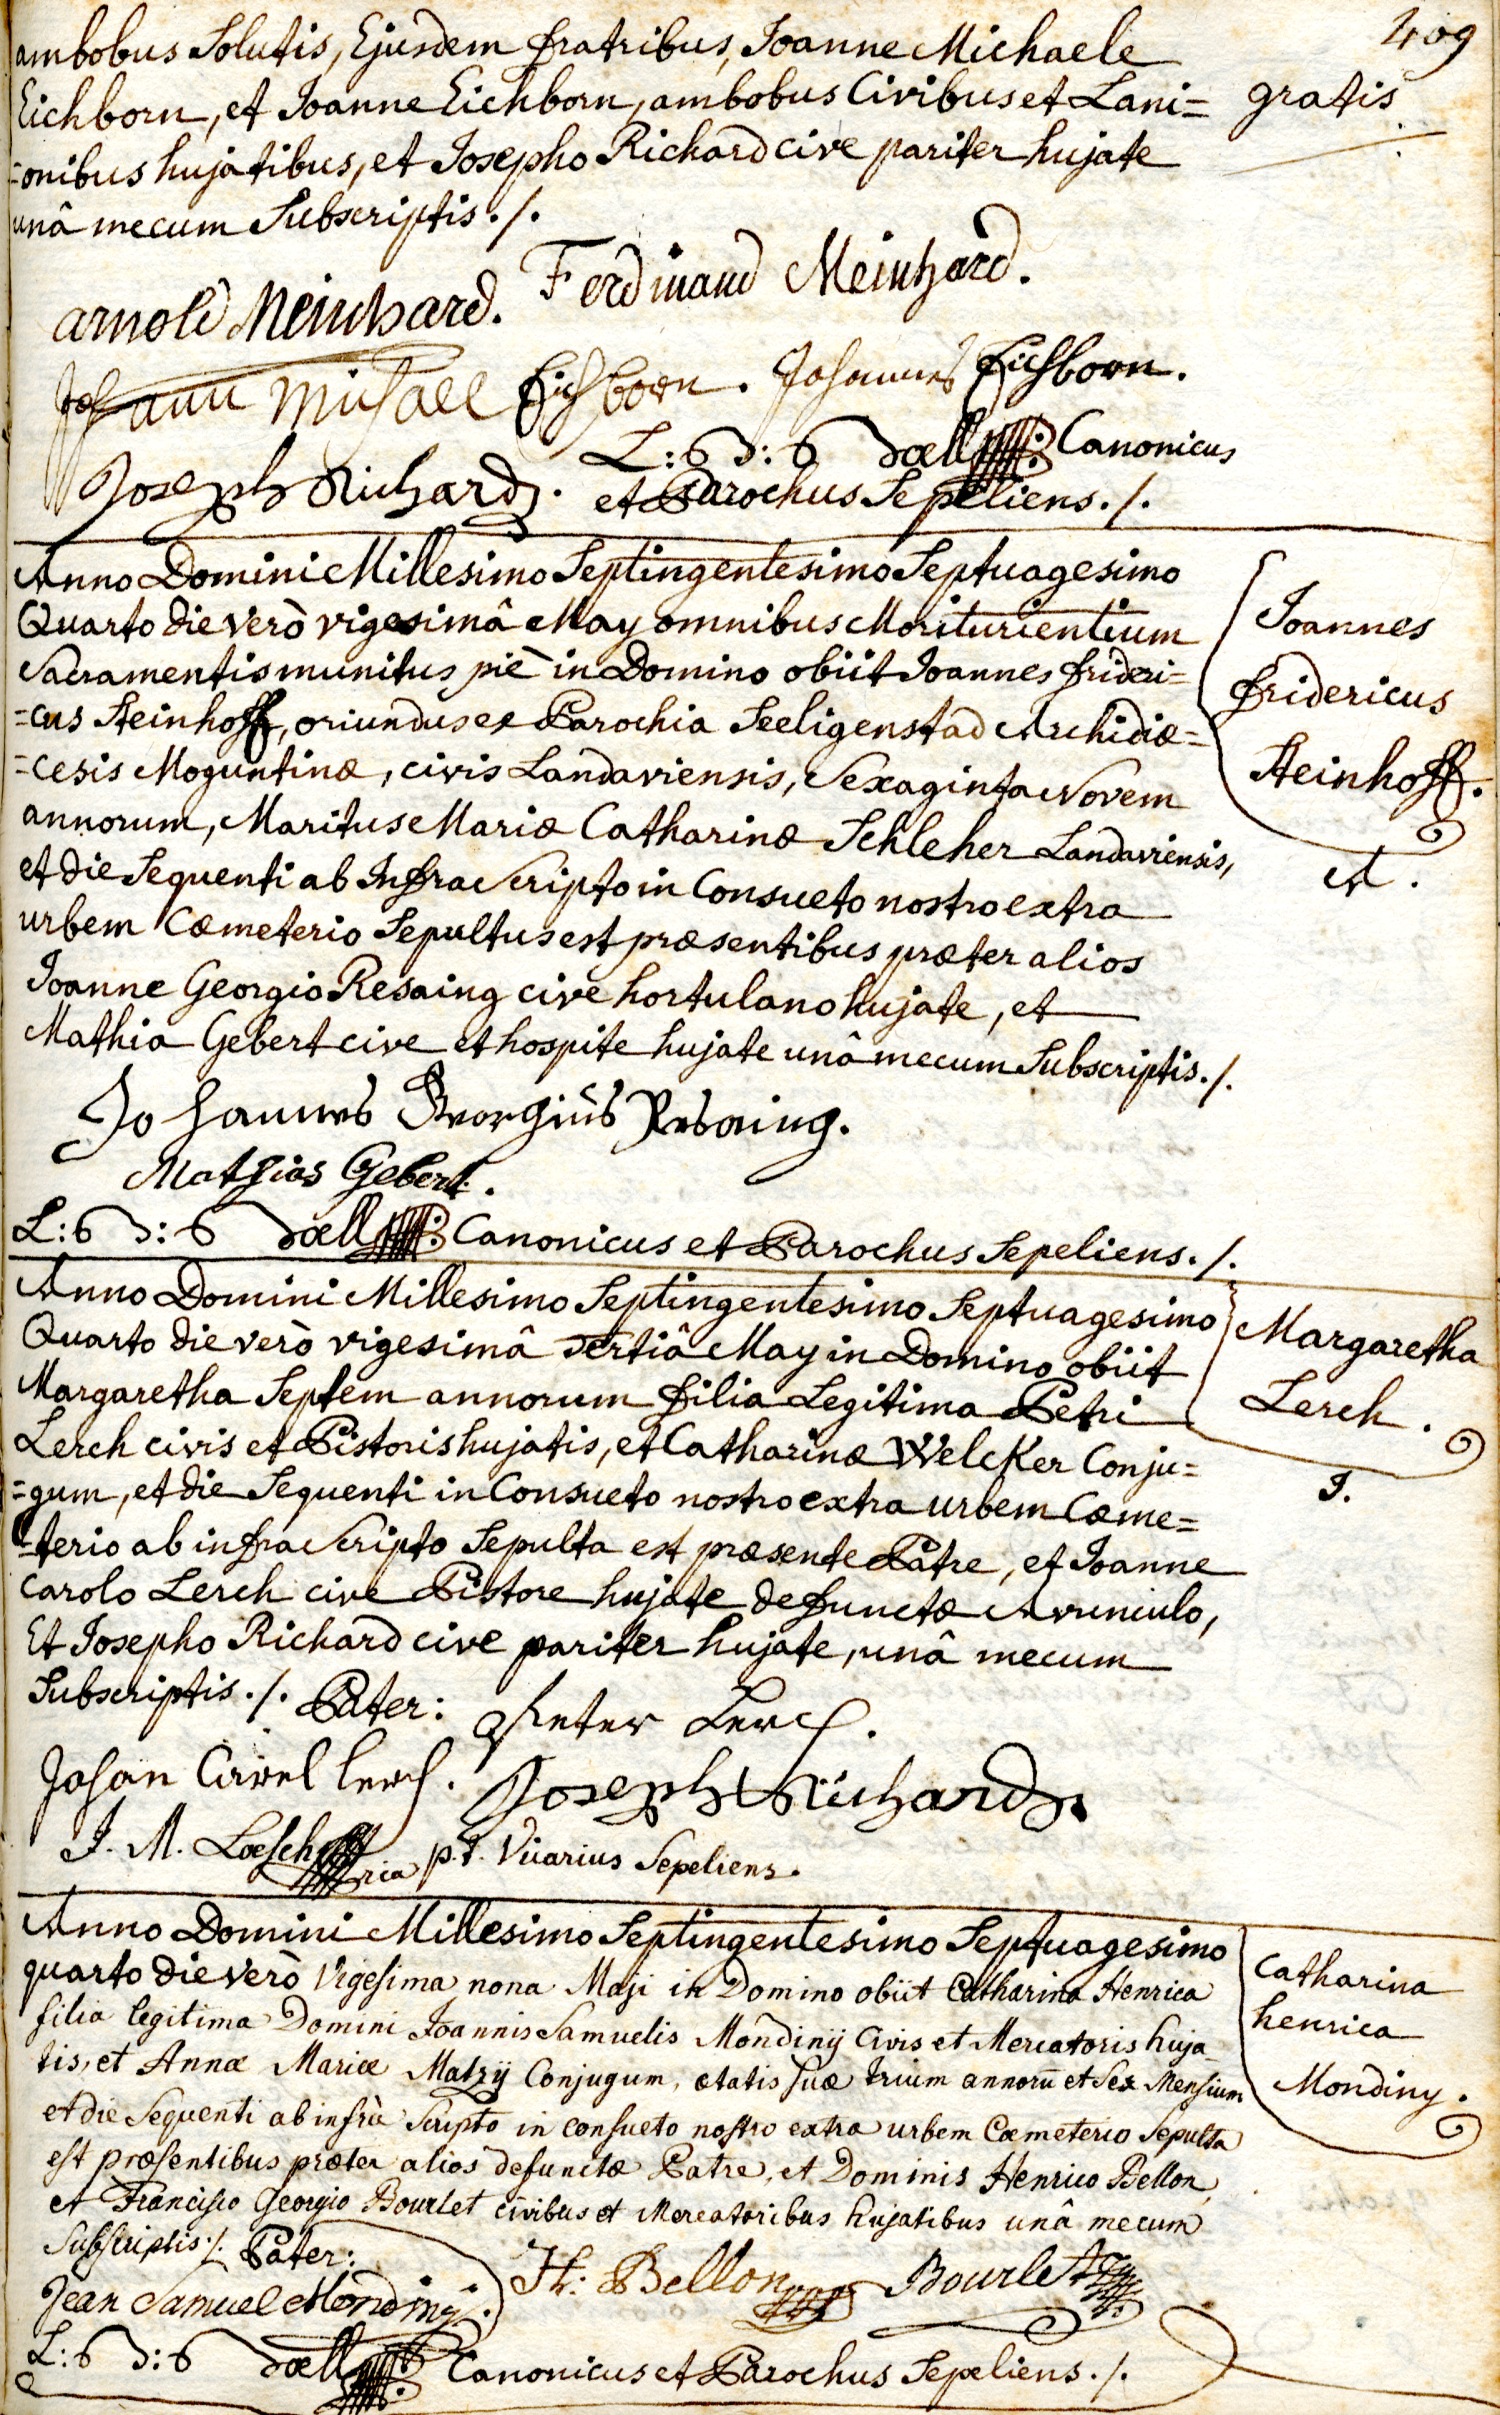 409
ambobus Solutis, Ejusdem fratribus, Joanne Michaele
Eichborn, et Joanne Eichborn, ambobus Civibus et Lani=
gratis
=onibus hujatibus, et Josepho Richard cive pariter hujate
unâ mecum Subscriptis ./.
arnold Meinhard. Ferdinand Meinhard.
Johann Michael Eichborn. Johannes Eichborn.
Joseph Richard.
Doell Canonicus
et Parochus Sepeliens ./.
Anno Domini Millesimo Septingentesimo Septuagesimo
Quarto die verò vigesimâ May omnibus Moriturientium
Sacramentis munitus piè in Domino obiit Joannes frideri=
=cus Steinhoff, oriundus ex Parochia Seeligenstad Archidiæ=
=cesis Moguntinæ, civis Landaviensis, Sexaginta Novem
annorum, Maritus Mariæ Catharinæ Schleher Landaviensis,
et die Sequenti ab Infra Scripto in Consueto nostro extra
urbem Cæmeterio Sepultus est præsentibus præter alios
Joanne Georgio Resaing cive hortulano hujate, et
Mathia Gebert cive et hospite hujate unâ mecum Subscriptis ./.
Joannes
fridericus
Steinhoff.
A.
Johannes Georgius Resaing.
Mathias Gebert.
Doell Canonicus et Parochus Sepeliens ./.
Anno Domini Millesimo Septingentesimo Septuagesimo
Quarto die verò vigesimâ Tertiâ May in Domino obiit
Margaretha Septem annorum filia Legitima Petri
Lerch civis et Pistoris hujatis, et Catharinæ Welcker Conju=
=gum, et die Sequenti in Consueto nostro extra urbem Cæme=
=terio ab infra Scripto Sepulta est præsente Patre, et Joanne
Carolo Lerch cive Pistore hujate defunctæ Avunculo,
Et Josepho Richard cive pariter hujate, unâ mecum
Subscriptis ./. Pater: Peter Lerch.
Margaretha
Lerch.
J.
Johan Carel Lerch. Joseph Richard.
J. M. Loesch p.t. Vicarius Sepeliens.
Anno Domini Millesimo Septingentesimo Septuagesimo
quarto die verò Vigesima nona Maji in Domino obiit Catharina Henrica
filia legitima Domini Joannis Samuelis Mondinij Civis et Mercatoris huja
tis, et Annæ Mariæ Matzij Conjugum, ætatis suæ trium annorũ et Sex Mensium
et die Sequenti ab infrà Scripto in consueto nostro extra urbem Cæmeterio Sepulta
est præsentibus præter alios defunctæ Patre, et Dominis Henrico Bellon,
et Francisco Georgio Bourlet civibus et Mercatoribus hujatibus unâ mecum
Subscriptis ./. Pater:
Catharina
henrica
Mondiny.
Jean Samuel Mondiny. H: Bellon Bourlet
Doell Canonicus et Parochus Sepeliens ./.